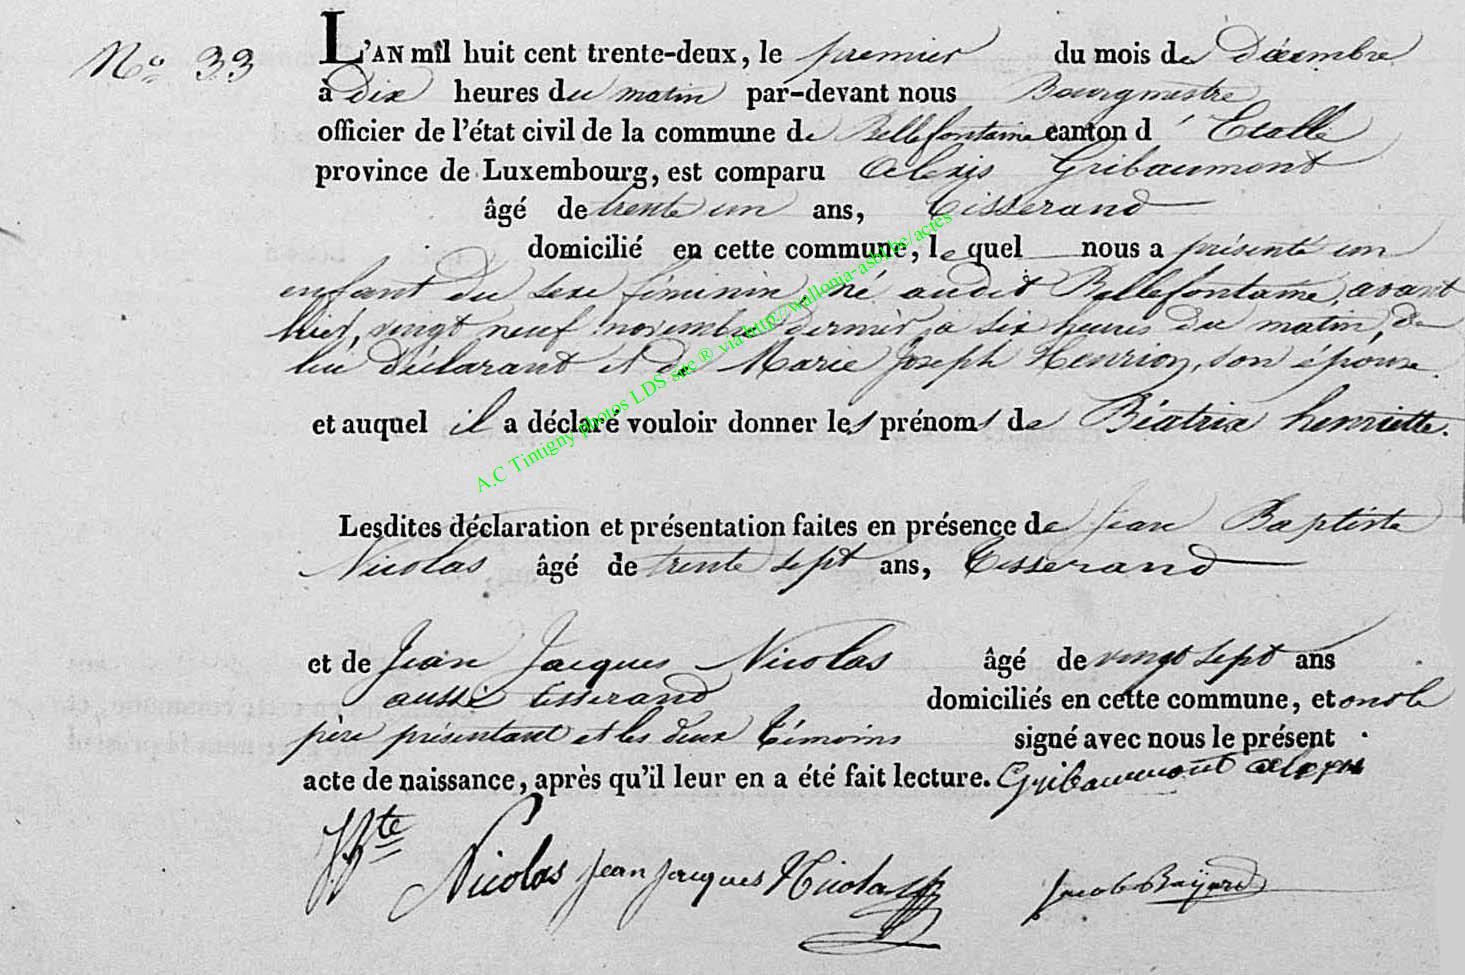 N° 33
L'AN mil huit cent trente-deux, le premier du mois de Décembre
à Dix heures du matin par-devant nous Bourgmestre
officier de l'état civil de la commune de Bellefontaine canton d' Etalle
province de Luxembourg, est comparu Alexis Gribaumont
âgé de trente un ans, Tisserand
domicilié en cette commune, le quel nous a présenté un
enfant du sexe féminin, né audit Bellefontaine, avant
hier, vingt neuf novembre dernier, à six heures du matin, de
lui déclarant et de Marie Joseph Henrion, son épouse.
et auquel il a déclaré vouloir donner les prénoms de Béatrix henriette.
A.C Tintigny photos LDS slc ® via http://wallonia-asbl.be/actes
Lesdites déclaration et présentation faites en présence de Jean Baptiste
Nicolas âgé de trente sept ans, Tisserand
et de Jean Jacques Nicolas âgé de vingt sept ans
aussi tisserand domiciliés en cette commune, et ont le
père présentant et les deux témoins signé avec nous le présent
acte de naissance, après qu'il leur en a été fait lecture. Gribaumont alexis
JBte Nicolas jean jacques Nicolas Jacob Bayard